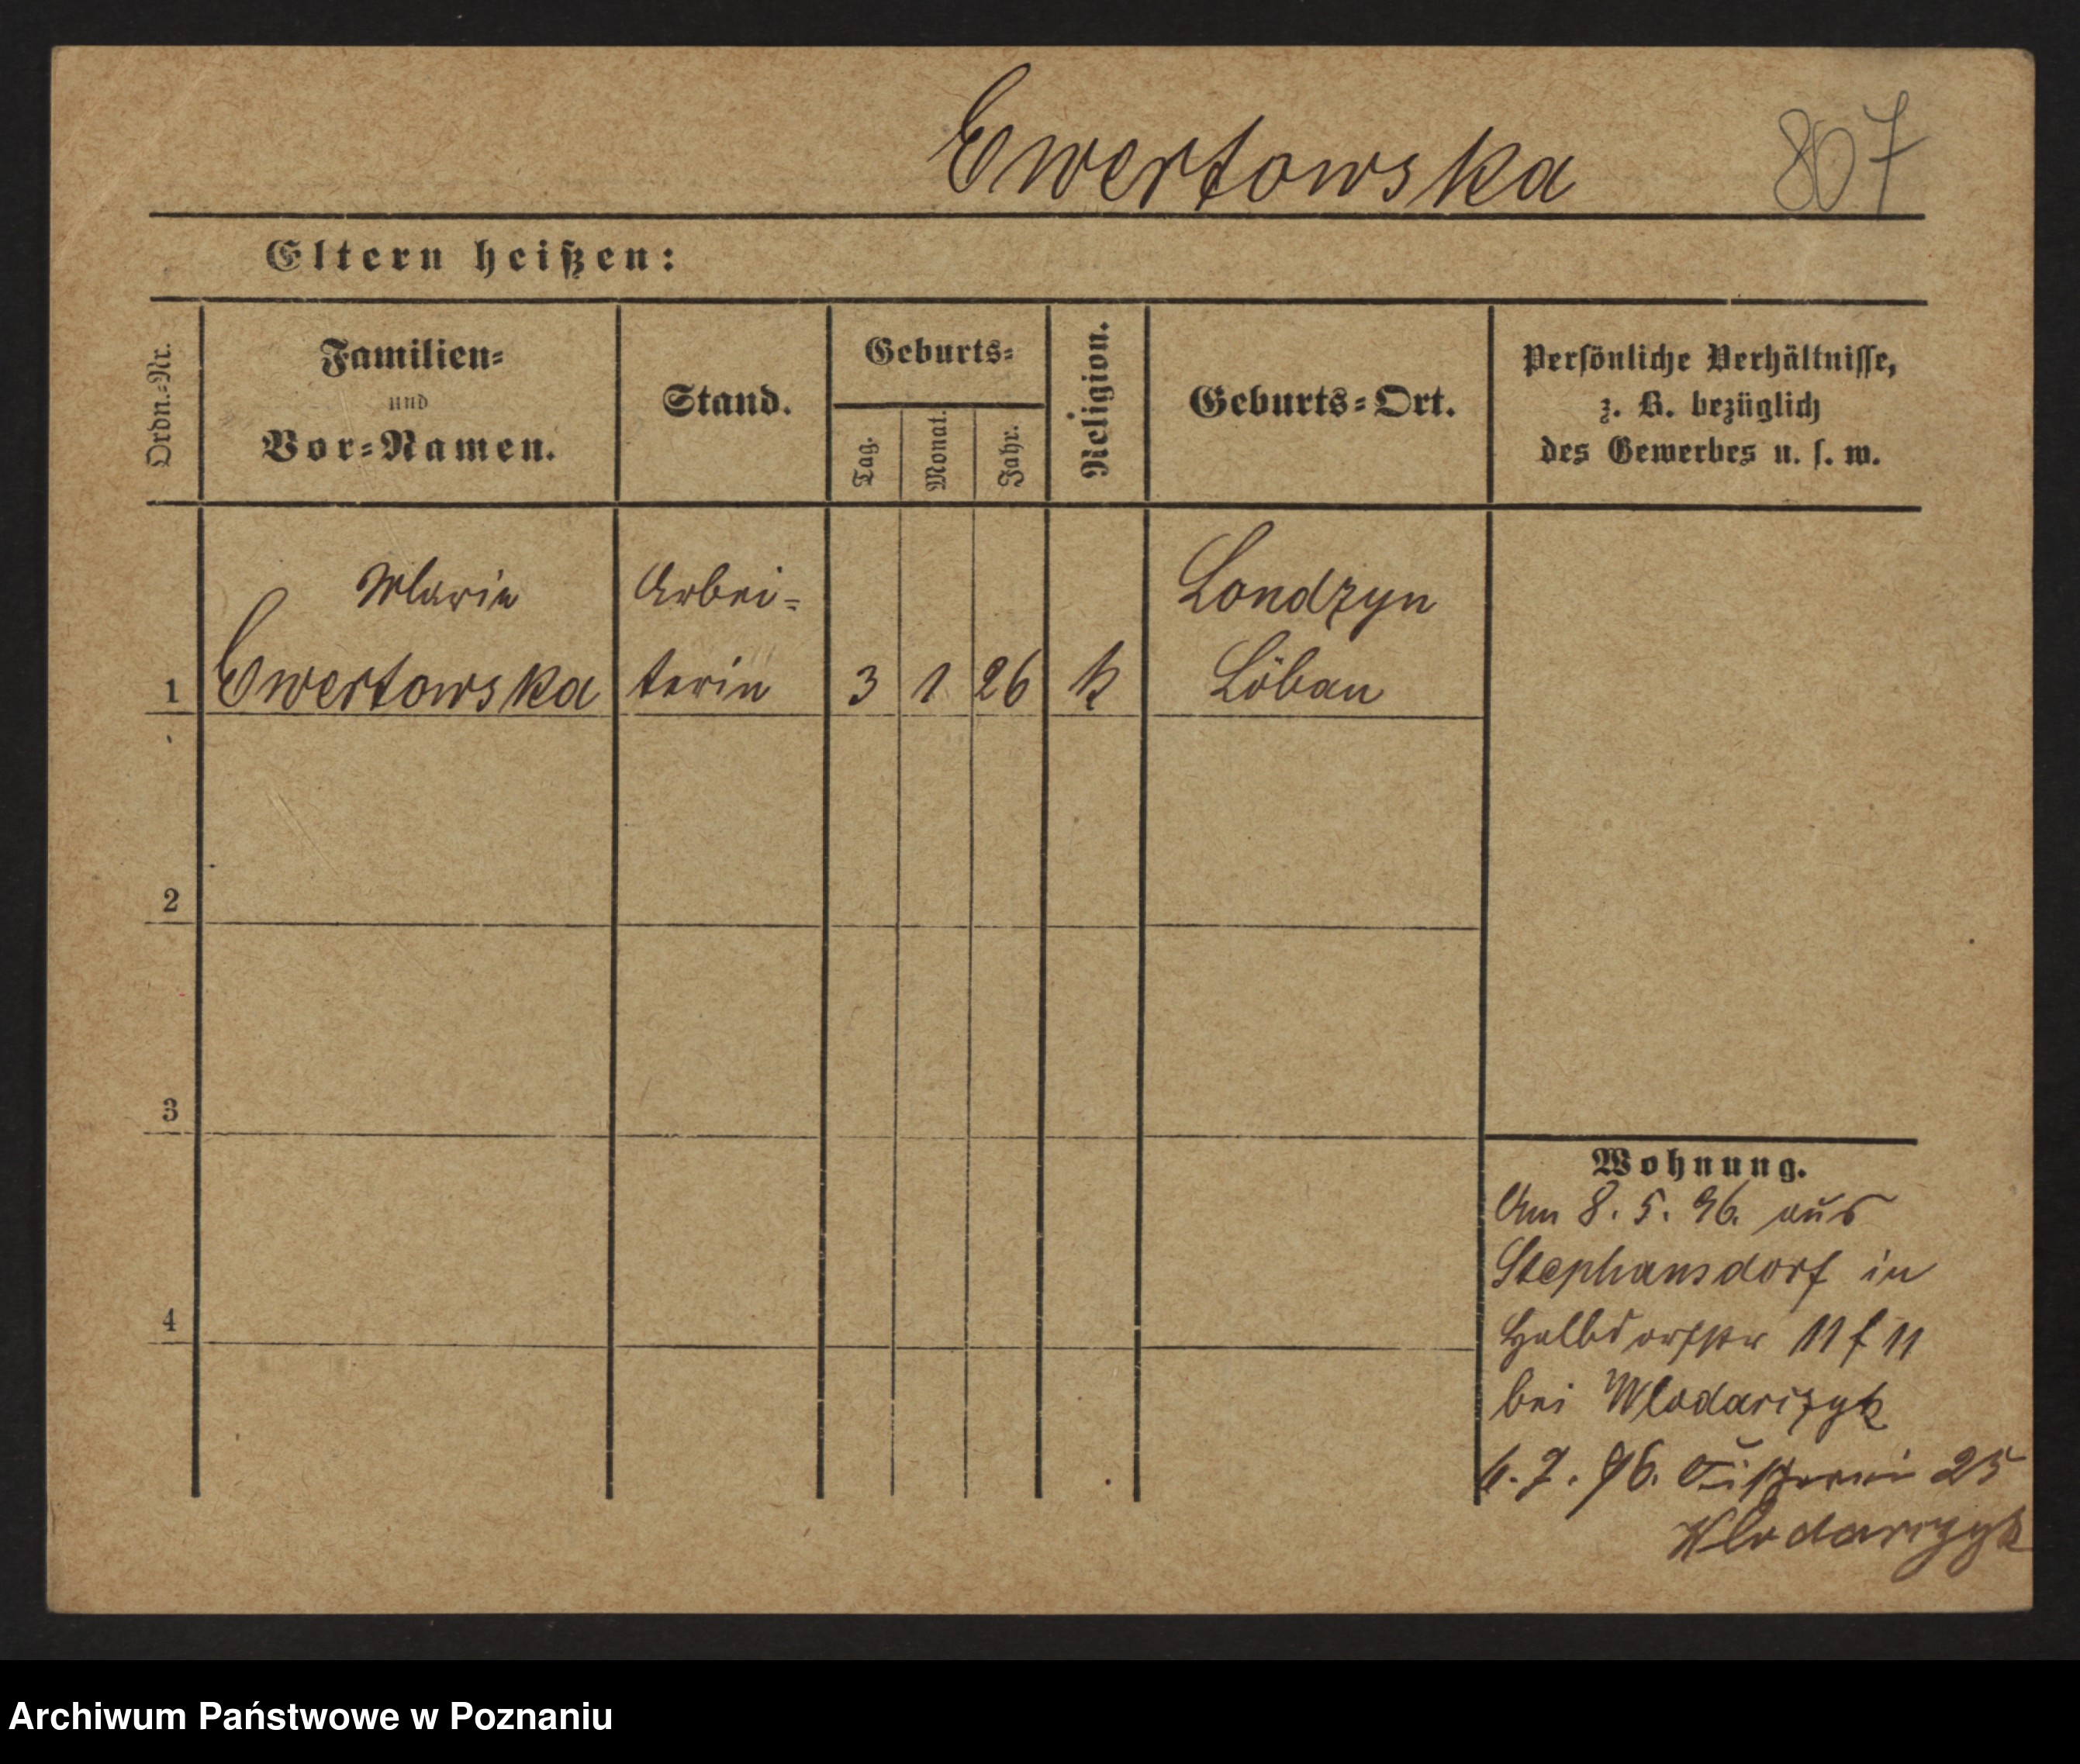 Ewertowska 807
Eltern heißen:
Ordn.-Nr.
Familien-
und
Vor-Namen.
Stand.
Geburts-
Tag.
Monat.
Jahr.
Religion.
Geburts-Ort.
Persönliche Verhältnisse,
z. B. bezüglich
des Gewerbes u. s. w.
Marie Arbei- Londzyn
1 Ewertowska terin 3 1 26 k Löbau
2
3
4
Wohnung.
Am 8. 5. 96. aus
Stephansdorf in
Halbdorfstr 11 f 11
bei Wlodarczyk
7. 96. Fischerei 25
Wlodarczyk
Archiwum Państwowe w Poznaniu